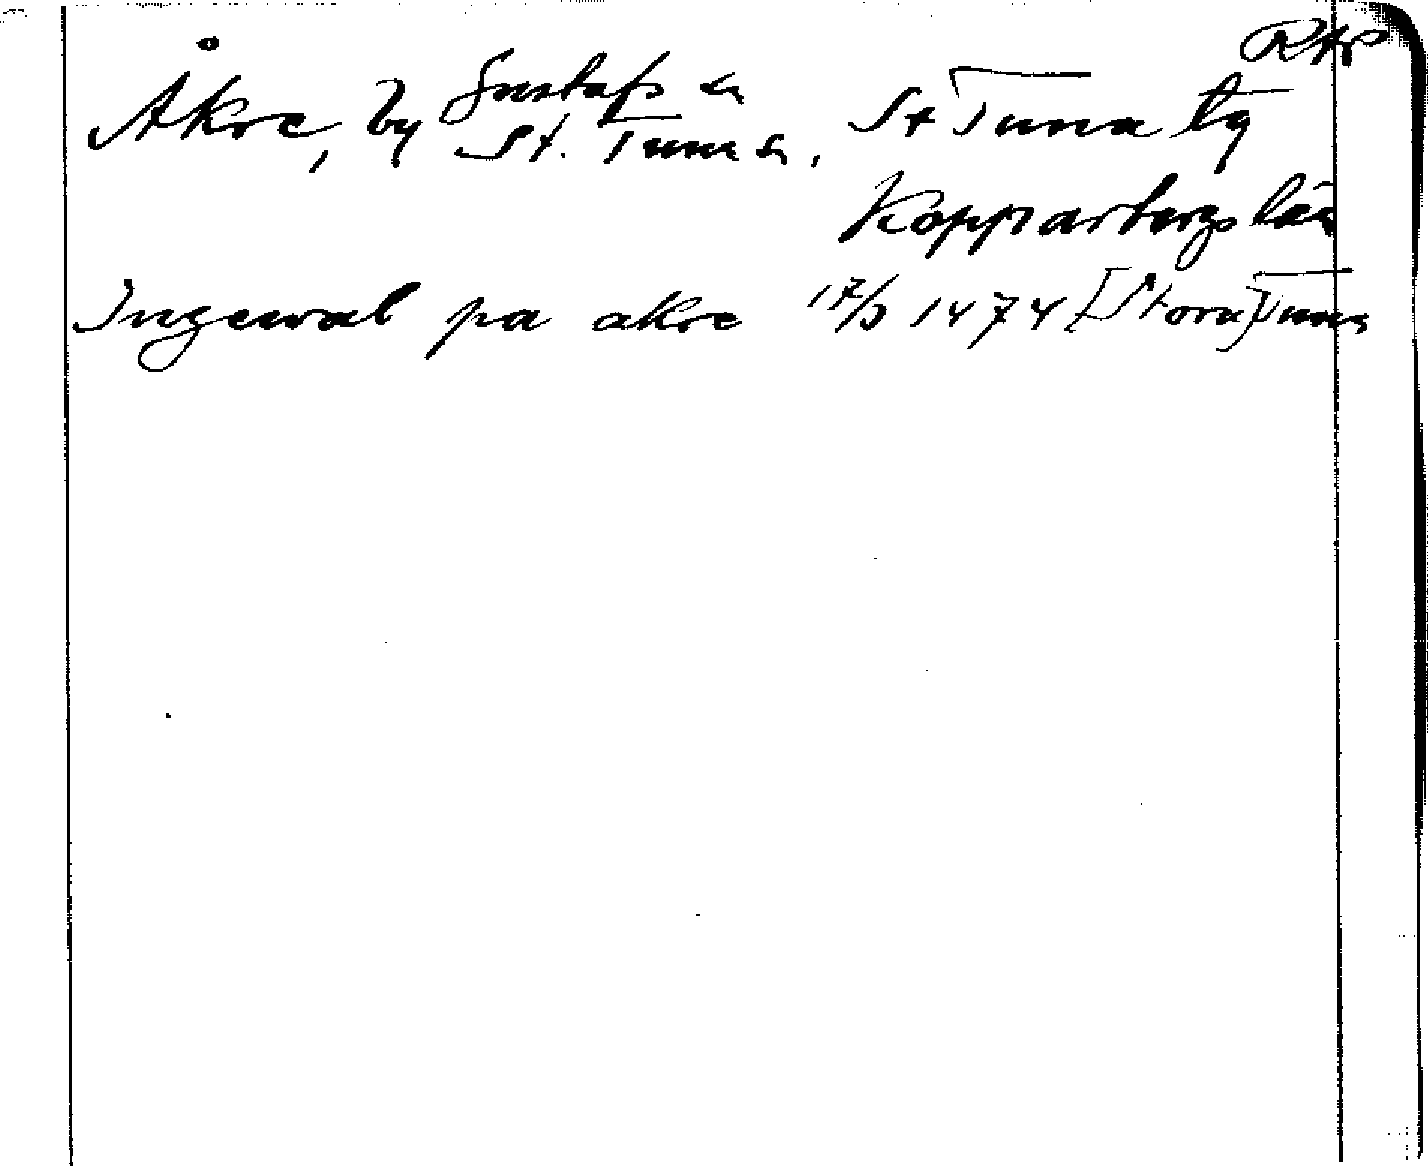 RAP
Åkre, by Gustafs sn
St. Tuna sn, St Tuna tg
Kopparbergs län
Ingewal pa akre 17/3 1474 [Stora] Tuna